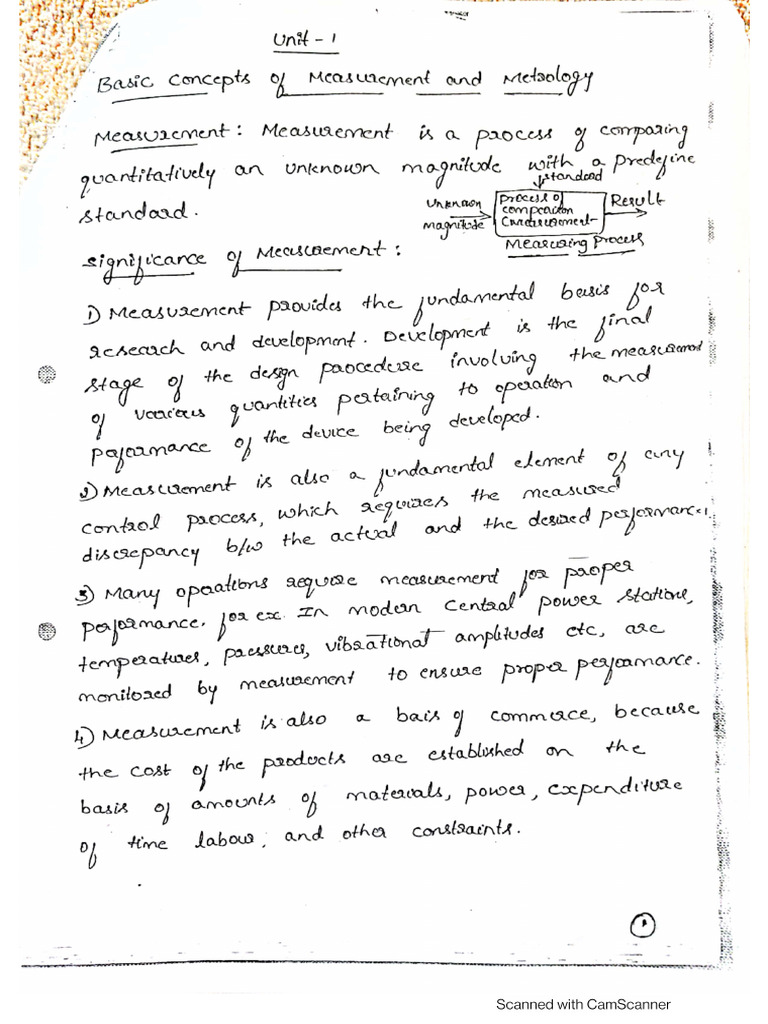 Unit - 1
Basic Concepts of Measurement and Metrology
Measurement: Measurement is a process of comparing
quantitatively an unknown magnitude with a predefine
standard.
standard
Unknown
magnitude
process of
comparison
(measurement
Result
Measuring Process
Significance of Measurement:
1) Measurement provides the fundamental basis for
research and development. Development is the final
stage of the design procedure involving the measurement
of various quantities pertaining to operation and
performance of the device being developed.
2) Measurement is also a fundamental element of any
control process, which requires the measured
discrepancy b/w the actual and the desired performance.
3) Many operations require measurement for proper
performance. for ex. In modern central power stations,
temperatures, pressures, vibrational amplitudes etc, are
monitored by measurement to ensure proper performance.
4) Measurement is also a bais of commerce, because
the cost of the products are established on the
basis of amounts of materials, power, expenditure
of time labour, and other constraints.
1
Scanned with CamScanner